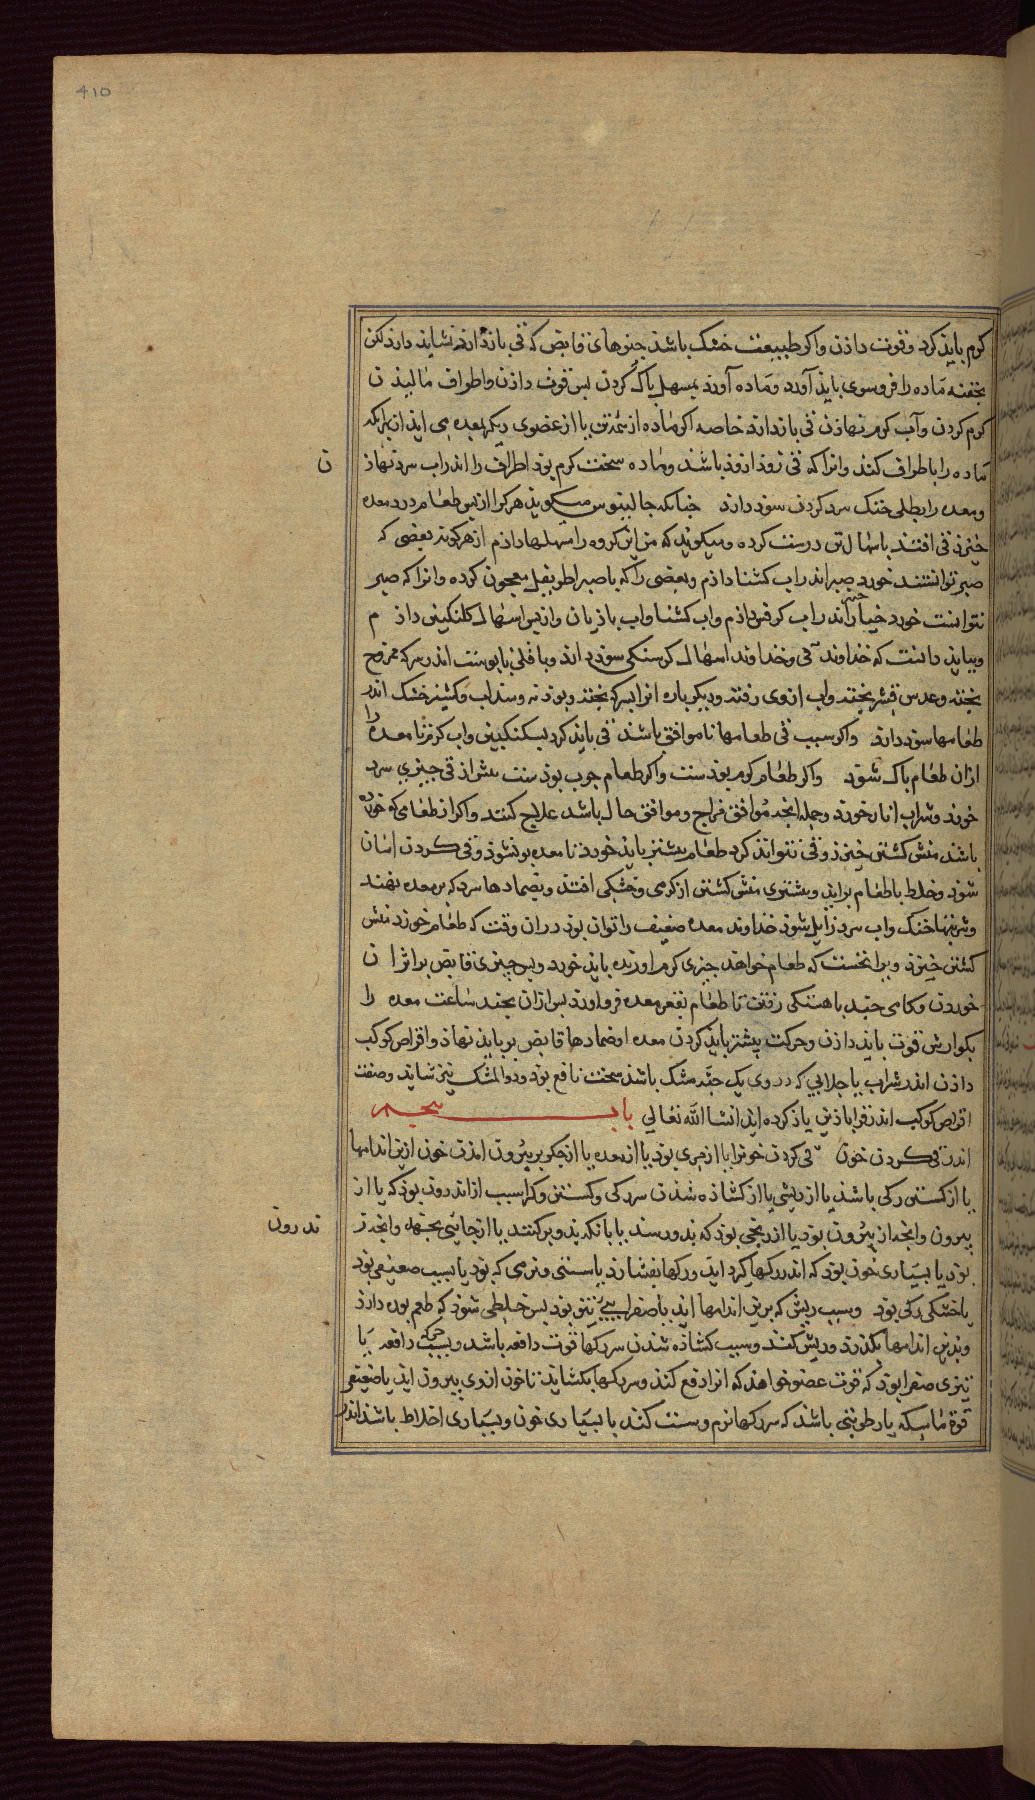 410
کرم باید کرد و قوت داذن واکر طبیعت خشک باشد چیزهای قابض که قی بازدارد نشاید داذ لکن
بحقنه مادّه را فروسوی باید آورد و مادّه آورذ بمسهل پاک کردن بس قوت داذن و اطراف مالیذن
کرم کردن و آب کرم نهاذن قی بازدارد خاصه اکر ماده از عضوی دیکر بمعده می اید از بهر انکه
ماده را باطراف کشد و انرا که قی زوذ ازوذ باشد و ماده سخت کرم بوذ اطراف را اندر اب سرد نهاذ
ن
ومعده را بطلی خنک سرد کردن سوددارد چنانکه جالینوس میکوید هر کرا از بس طعام درد معده
خیزد قی افتد باسهال تن درست کرده و میکوید که من این کروه را مسهلها داذم از هر کونه بعضی که
صبر توانستند خورد صبر اندر اب کشنا داذم و بعضی را که یا صبر اطریفل معجون کرده وانرا که صبر
نتوانست خورد خیار اندر اب کرفس داذم واب کشنا واب باذیان واز پس اسهال کلنکبین داذم
و بباید دانست که خداوند قی و خداوند اسهال کرسنکی سود دارد و باقلی با پوست اندر سرکه ممزوج
بخته و عدس قشر بخته واب ازوی رفته ودیکر باره انرا بسرکه بخته و بوذنه و سداب و کشنیز خشک اندر
طعامها سود دارد واکر سبب قی طعامها ناموافق باشد قی باید کرد بسکنکبین واب کرم تا معده را
ازان طعام پاک شوذ واکر طعام کرم بوذست واکر طعام چرب بوذست پیش از قی چیزی سرد
خورد و شراب انار خورذ و جمله انچه موافق مزاج و موافق حال باشد علاج کنند واکر از طعامی که خورده
باشد منش کشتن خیزد و قی نتواند کرد طعام بیشتر باید خورد تا معده بر شود و قی کردن اسان
شود و خلط با طعام براید و بیشتری منش کشتن از کرمی و خشکی افتد و بضمادهاء سرد که بر معده نهند
و شربتهاء خنک واب سرد زایل شوذ خداوند معده ضعیف را توان بوذ دران وقت که طعام خورد منش
کشتن خیزد و برا نخست که طعام خواهد چیزی کرم اورنده باید خورد و بس چیزی قابض بر اثر ان
خوردن و کامی چند باهستکی رفتن تا طعام بقعر معده فروذ اورد بس ازان بچند ساعت معده را
بکوارش قوت باید داذن و حرکت بیشتر باید کردن معده اضمادها قابض بر باید نهاذ و اقراص کوکب
داذن اندر شراب یا جلابی که در وی یک حبّه مشک باشد سخت نافع بوذ و دوالمشک نیز شاید و صفت
اقراص کوکب اندر قراباذین یاذ کرده اید انشاالله تعالی باب پنجم
اندر قی کردن خون قی کردن خون یا از مری بوذ یا از معده یا از جکر بر بیرون امدن خون ازین اندامها
یا از کسستن رکی باشد یا از ریشی یا از کشاذه شدن سر رکی و کسستن رک را سبب از اندرون بوذ که یا از
بیرون وانچه از بیرون بوذ یا از رنجی بوذ که بدو رسد یا بانکه بذو بر کنند یا از جائی بجهد وانچه از
ندرون
بوذ یا بسیاری خون بوذ که اندر رکها کرد اید و رکها بفشارد یا سستی و نرمی که بوذ یا بسبب ضعیفی بوذ
یا خشکی رکی بوذ و سبب ریش که برین اندامها اید یا صفرایی تیز بوذ بس خلطی شوذ که طعم بوره دارد
و بذین اندامها بکذرد و ریش کند و سبب کشاذه شدن سر رکها قوت دافعه باشد و سبب حرکه دافعه یا
تیزی صفرا بوذ که قوت عضو خواهد که انرا دفع کند و سر رکها بکشاید تا خون ازوی بیرون اید یا ضعیفی
قوة ماسکه یا رطوبتی باشد که سر رکها نرم و سست کند یا بسیاری خون و بسیاری اخلاط باشد اندر